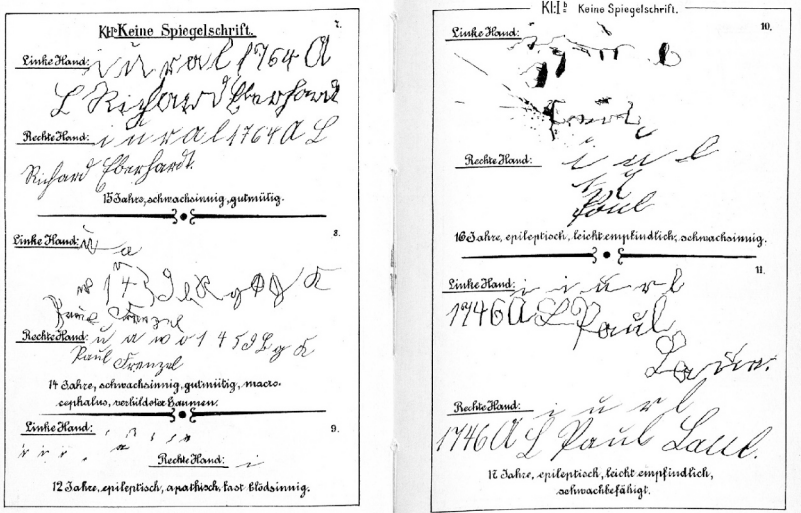 Kl:I^b Keine Spiegelschrift.
7.
Linke Hand: i u r a l 1764 A
L Richard Eberhardt
Rechte Hand: i u r a l 1764 A L
Richard Eberhardt.
15 Jahre, schwachsinnig, gutmütig.
8.
Linke Hand: u a
14
Paul Frenzel
Rechte Hand: u a w o 1 4 5
Paul Frenzel
14 Jahre, schwachsinnig, gutmütig, macro-
cephalus, verbildeter Gaumen.
9.
Linke Hand:
Rechte Hand: i
12 Jahre, epileptisch, apathisch, fast blödsinnig.
Kl:I^b Keine Spiegelschrift.
10.
Linke Hand:
Rechte Hand: i u l
Paul
16 Jahre, epileptisch, leicht empfindlich, schwachsinnig.
11.
Linke Hand: i u r l
1746 A L Paul
Rechte Hand: i u r l
1746 A L Paul
17 Jahre, epileptisch, leicht empfindlich,
schwachbefähigt.